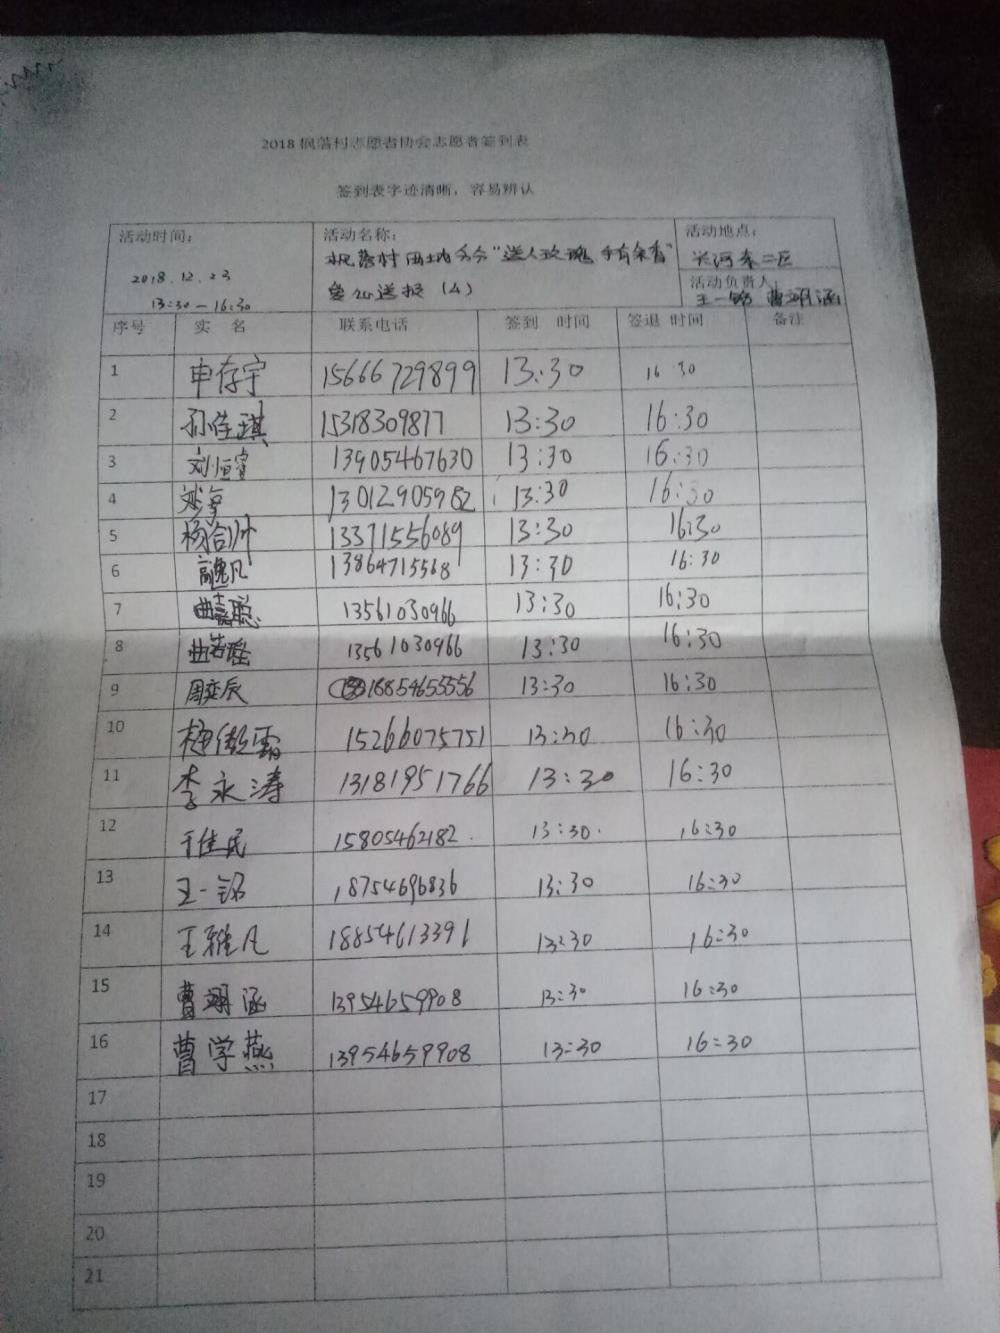 2018枫落村志愿者协会志愿者签到表
签到表字迹清晰，容易辨认
活动时间：
2018.12.23
13:30—16:30
活动名称：
枫落村 "送人玫瑰 手有余香"
爱心送报（4）
活动地点：
长河东二区
活动负责人：
王一铭 曹翊涵
序号 实 名 联系电话 签到 时间 签退 时间 备注
1 申存宇 15666729899 13:30 16 30
2 孙佳琪 15318309817 13:30 16:30
3 刘恒睿 13905467630 13:30 16:30
4 13012905982 13:30 16:30
5 杨帅 13371556089 13:30 16:30
6 凡 13864715568 13:30 16:30
7 曲嘉聪 13561030966 13:30 16:30
8 曲若瑶 13561030966 13:30 16:30
9 周奕辰 18854653556 13:30 16:30
10 傲霜 15266075751 13:30 16:30
11 李永涛 13181951766 13:30 16:30
12 于佳民 15805462182 13:30 16:30
13 王一铭 18754696836 13:30 16:30
14 王雅凡 18854613391 13:30 16:30
15 曹翊涵 13954659908 13:30 16:30
16 曹学燕 13954659908 13:30 16:30
17
18
19
20
21